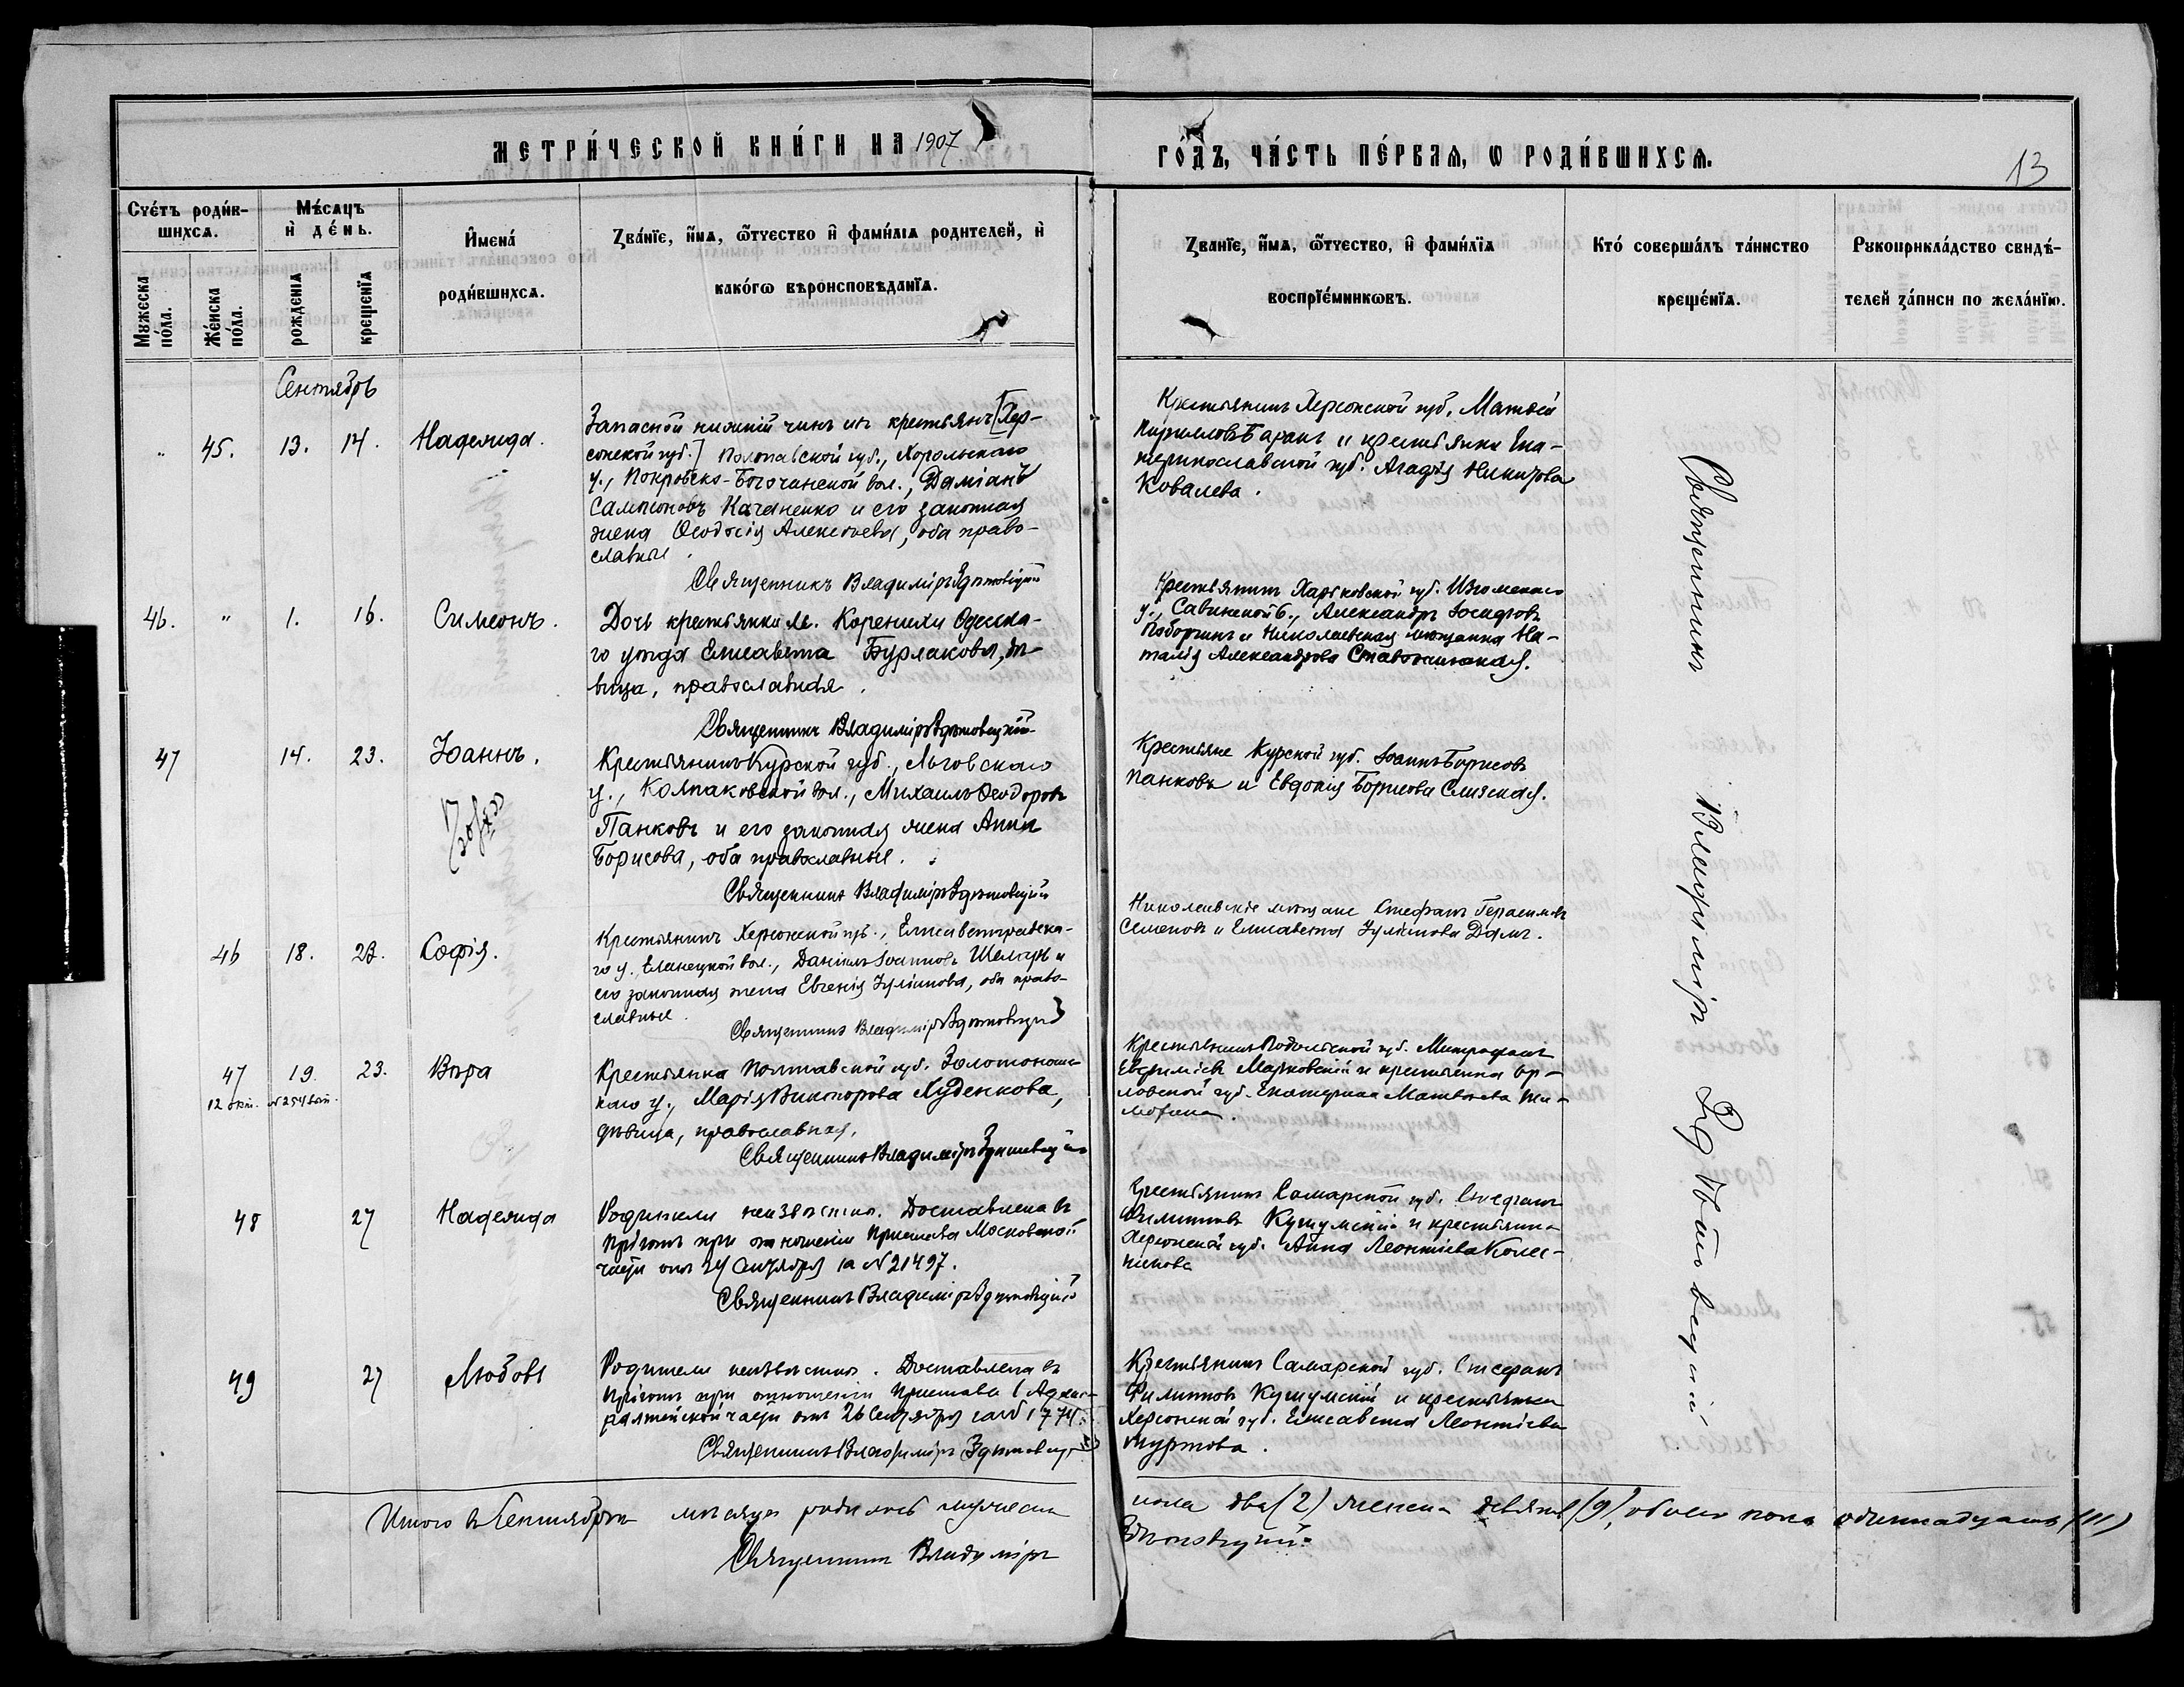 МЕТРИ́ЧЕСКОЙ КНИ́ГИ НА 1907
ГО́ДЪ, ЧА́СТЬ ПЕ́РВАѦ, Ѡ РОДИ́ВШИХСѦ.
13
Счётъ роди́в-
шихсѧ.
Мѣ́сѧцъ
и҆ де́нь.
И҆мена́
роди́вшихсѧ.
Зва́нїе, и҆́мѧ, ѻ҆́тчество и҆ фами́лїѧ родителей, и҆
како́гѡ вѣроисповѣданїѧ.
Зва́нїе, и҆́мѧ, ѻ҆́тчество, и҆ фами́лїѧ
воспрїе́мникѡвъ.
Кто́ соверша́лъ та́инство
креще́нїѧ.
Рукоприкла́дство свидѣ́-
телей за́писи по жела́нїю.
Мꙋжеска
по́ла.
Же́нска
по́ла.
рожденїѧ
крещенїѧ
Сентябрь
" 45. 13. 14. Надежда.
Запасной нижній чинъ изъ крестьянъ [Хер-
сонской губ.] Полтавской губ., Хорольскаго
у., Покровско-Богачанской вол., Даміанъ
Сампсоновъ Качаненко и его законная
жена Ѳеодосія Алексѣева, оба право-
славные.
Священникъ Владиміръ Здѣтовецкій
Крестьянинъ Херсонской губ. Матвей
Кирилловъ Баранъ и крестьянка Ека-
теринославской губ. Агафія Никитова
Ковалева.
46. " 1. 16. Симеонъ.
Дочь крестьянки м. Коренихи Одесска-
го уѣзда Елисавета Бурлакова, дѣ-
вица, православная.
Священникъ Владиміръ Здѣтовецкій
Крестьянинъ Харьковской губ. Изюмскаго
у., Савинской в., Александръ Іосифовъ
и Николаевская мѣщанка На-
талія Александрова
47 14. 23. Іоаннъ.
Крестьянинъ Курской губ., Льговскаго
у., Колпаковской вол., Михаилъ Ѳеодоровъ
Панковъ и его законная жена Анна
Борисова, оба православные.
Священникъ Владиміръ Здѣтовецкій
Крестьяне Курской губ. Іоаннъ Борисовъ
Панковъ и Евдокія Борисова
46 18. 23. Софія.
Крестьянинъ Херсонской губ., Елисаветградска-
го у. Еланецкой вол., Даніилъ Іоанновъ и
его законная жена Евгенія Іуліанова, оба право-
славные.
Священникъ Владиміръ Здѣтовецкій
Николаевскіе мѣщане Стефанъ Герасимовъ
Семеновъ и Елисавета Іуліанова
47 19. 23. Вѣра
12 окт. № 254
Крестьянка Полтавской губ. Золотонош-
скаго у., Марія Никифорова Худенкова,
дѣвица, православная.
Священникъ Владиміръ Здѣтовецкій
Крестьянинъ Подольской губ. Митрофанъ
Марковскій и крестьянка Ор-
ловской губ. Екатерина Матвѣева Ти-
мохина.
48 27 Надежда
Родители неизвѣстны. Доставлена въ
пріютъ при отношеніи Пристава Московской
части отъ 24 Сентября за № 21497.
Священникъ Владиміръ Здѣтовецкій
Крестьянинъ Самарской губ. Стефанъ
Филипповъ Кутумскій и крестьянка
Херсонской губ. Анна Леонтіева Колес-
никова
49 27 Любовь
Родители неизвѣстны. Доставлена въ
пріютъ при отношеніи Пристава Адми-
ралтейской части отъ 26 Сентября
Священникъ Владиміръ Здѣтовецкій
Крестьянинъ Самарской губ. Стефанъ
Филипповъ Кутумскій и крестьянка
Херсонской губ. Елисавета Леонтіева
Священникъ Владиміръ Здѣтовецкій
Итого въ Сентябрѣ мѣсяцѣ родилось мужеска
пола два (2) женска девять (9), обоего пола одиннадцать (11)
Священникъ Владиміръ
Здѣтовецкій